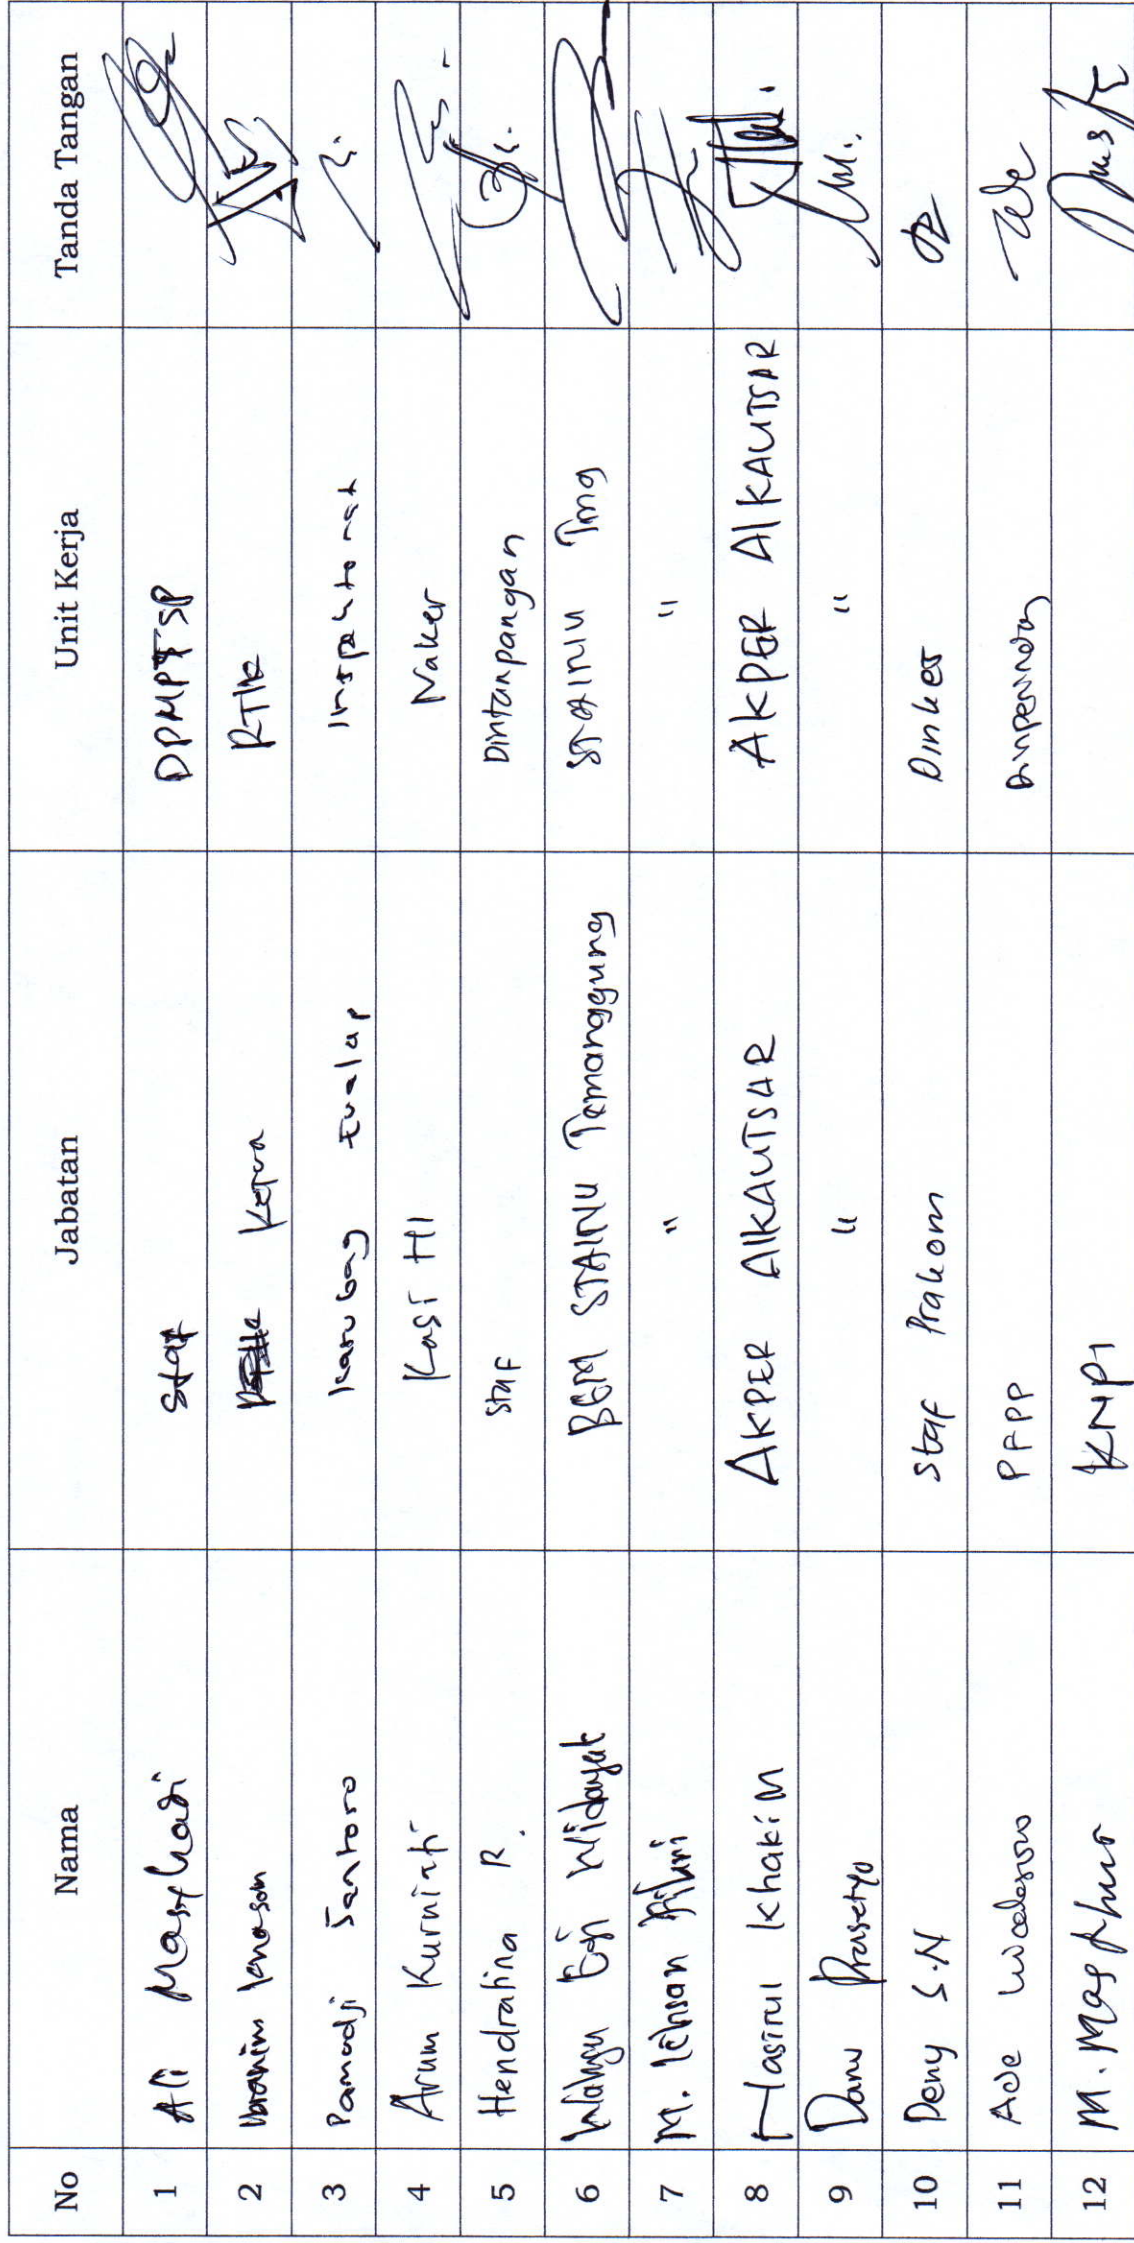 No Nama Jabatan Unit Kerja Tanda Tangan
1 Ali Masyhadi Staf DPMPTSP
2 Ibrahim Ketua RTIK
3 Pamodji Santoro Kasubag Evalap Inspektorat
4 Arum Kurniati Kasi HI Naker
5 Hendratina R. Staf Dintanpangan
6 Wahyu Egi Widayat BEM STAINU Temanggung STAINU Tmg
7 M. Ichsan " "
8 Hasirul Khakim AKPER ALKAUTSAR AKPER ALKAUTSAR
9 Danu Prasetyo " "
10 Deny S.N Staf Prakom Dinkes
11 Ade PFPP Dinperindag Ade
12 M. Mashur KNPI